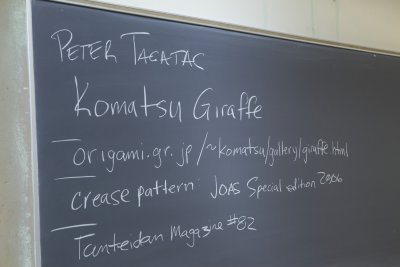 PETER TAGATAC
Komatsu Giraffe
origami.gr.jp/~komatsu/gallery/giraffe.html
crease pattern: JOAS Special edition 2006
Tanteidan Magazine #82